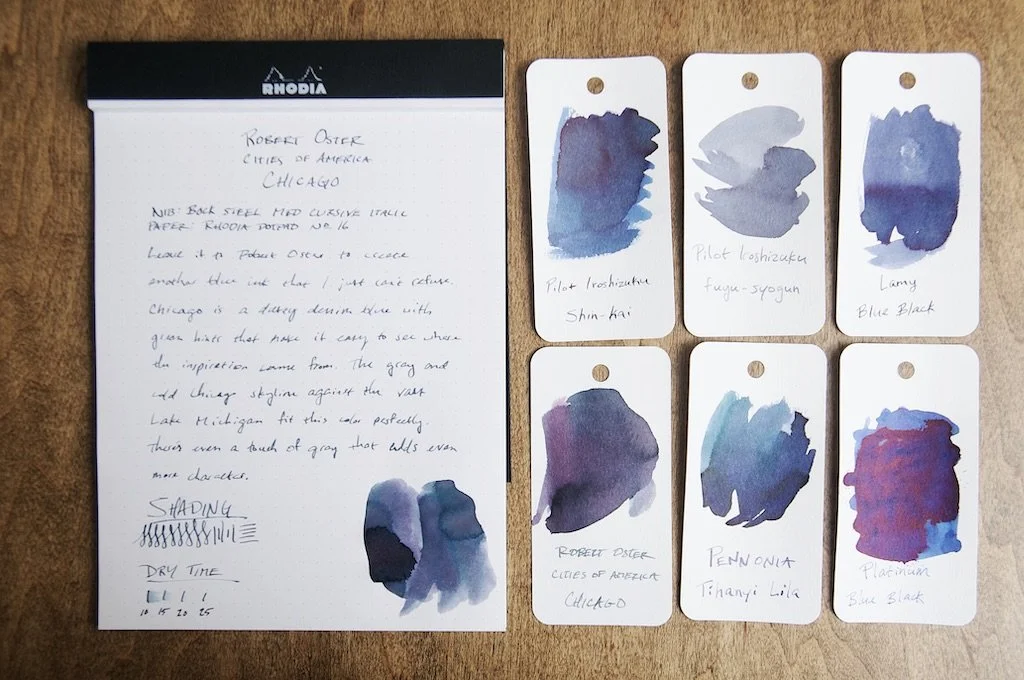 RHODIA
ROBERT OSTER
CITIES OF AMERICA
CHICAGO
NIB: BOCK STEEL MED CURSIVE ITALIC
PAPER: RHODIA DOTPAD NO. 16
Leave it to Robert Oster to create
another blue ink that I just can't refuse.
Chicago is a dusty denim blue with
green hints that make it easy to see where
the inspiration came from. The gray and
cold Chicago skyline against the vast
Lake Michigan fit this color perfectly.
There's even a touch of gray that adds even
more character.
SHADING
DRY TIME
10 15 20 25
Pilot Iroshizuku
Shin-kai
Pilot Iroshizuku
fuyu-syogun
Lamy
Blue Black
ROBERT OSTER
CITIES OF AMERICA
CHICAGO
PENNONIA
Tihanyi Lila
Platinum
Blue Black